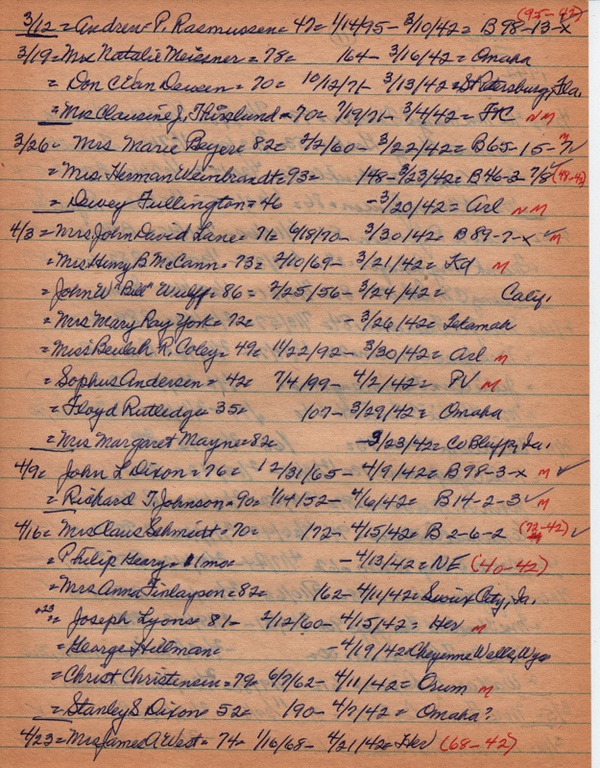 3/12 = Andrew P. Rasmussen = 47 = 1/14/95 - 3/10/42 = B98-13-x (95-42)
3/19 = Mrs Natalie Meisner = 78 = 164 - 3/16/42 = Omaha
= Don C Van Deusen = 70 = 10/12/71 - 3/13/42 = St Petersburg, Fla.
= Mrs Clausine J. = 70 = 7/19/71 - 3/4/42 = FtC NM
3/26 = Mrs Marie Beyer = 82 = 2/2/60 - 3/22/42 = B65-15-7 M ✓
= Mrs. Herman Weinbrandt = 93 = 148 - 3/23/42 = B46-2-7/8 ✓ (48-42)
= Dewey Fullington = 46 - 3/20/42 = Arl NM
4/3 = Mrs John David Lane = 71 = 6/18/70 - 3/30/42 = B89-7-x ✓ M
= Mrs Henry B. McCann = 73 = 2/10/69 - 3/21/42 = Kd M
= John W "Bill" Wulff = 86 = 2/25/56 - 3/24/42 = Calif.
= Mrs Mary Ray York = 72 = - 3/26/42 = Tekamah
= Miss Beulah R. Coley = 49 = 11/22/92 - 3/30/42 = Arl M
= Sophus Andersen = 42 = 7/4/99 - 4/2/42 = PV M
= Floyd Rutledge = 35 = 107 - 3/29/42 = Omaha
= Mrs Margaret Mayne = 82 = - 3/23/42 = Co Bluffs, Ia.
4/9 = John L Dixon = 76 = 12/31/65 - 4/9/42 = B98-3-x M ✓
= Richard T. Johnson = 90 = 1/14/52 - 4/6/42 = B14-2-3 ✓ M
4/16 = Mrs Claus Schmidt = 70 = 172 - 4/15/42 = B2-6-2 (72-42) ✓
= Philip Heary = 11mo = - 4/13/42 = NE (40-42)
= Mrs Anna Finlayson = 82 = 162 - 4/11/42 = Sioux City, Ia.
"23 = Joseph Lyons = 81 - 2/12/60 - 4/15/42 = Her M
= George Hillman = - 4/19/42 = Cheyenne Wells, Wyo
= Christ Christensen = 79 = 6/7/62 - 4/11/42 = Orum M
= Stanley S Dixon = 52 = 190 - 4/7/42 = Omaha?
4/23 = Mrs James A West = 74 = 1/16/68 - 4/21/42 = Her (68-42)